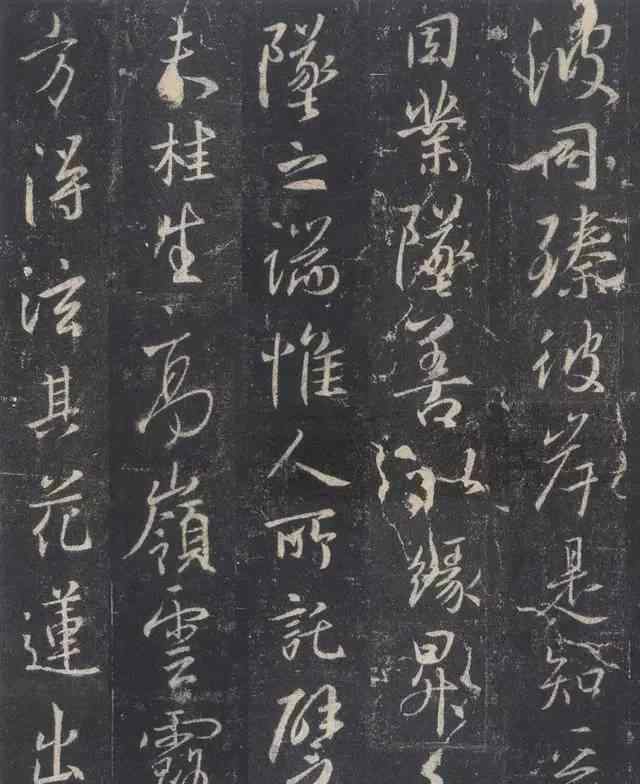 波同臻彼岸是知
因業墜善以緣昇
墜之端惟人所託譬
夫桂生高嶺雲露
方得泫其花蓮出